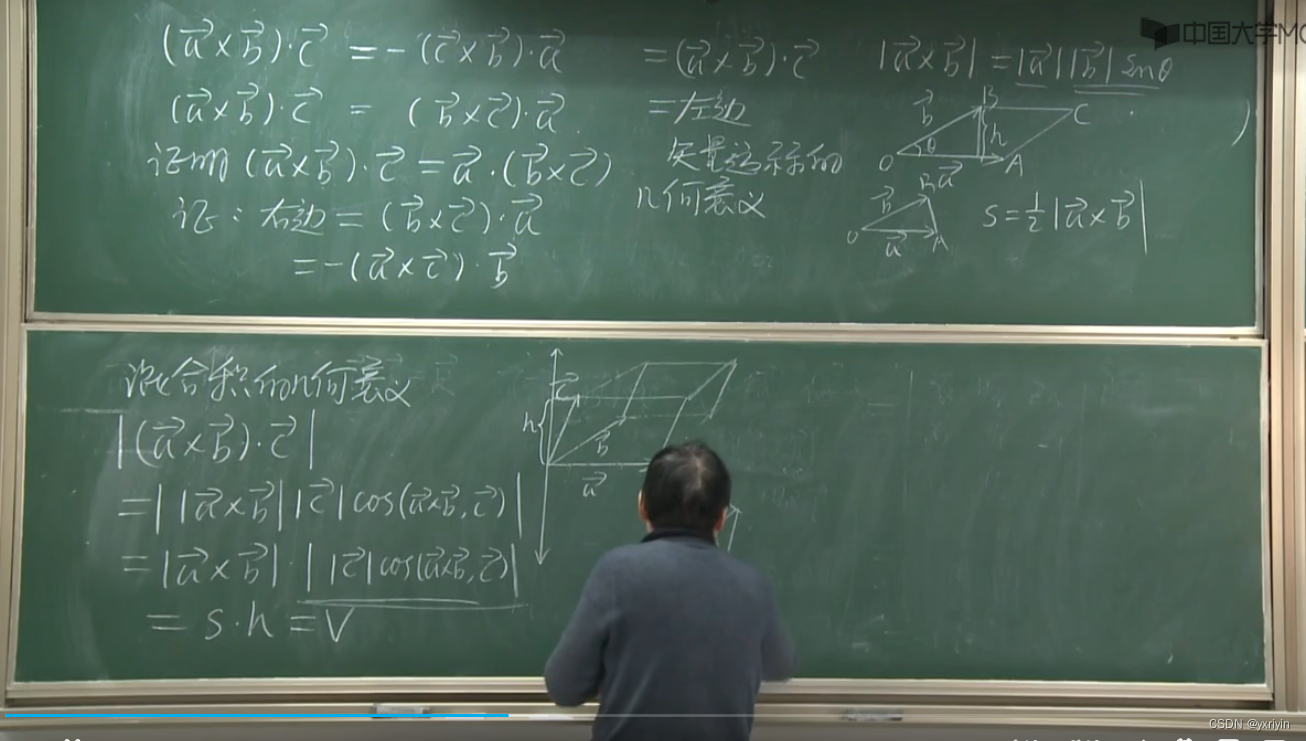 (a⃗×b⃗)·c⃗ = -(c⃗×b⃗)·a⃗
(a⃗×b⃗)·c⃗ = (b⃗×c⃗)·a⃗
证明 (a⃗×b⃗)·c⃗ = a⃗·(b⃗×c⃗)
证：右边 = (b⃗×c⃗)·a⃗
= -(a⃗×c⃗)·b⃗
= (a⃗×b⃗)·c⃗
= 左边
矢量运算的
几何意义
|a⃗×b⃗| = |a⃗||b⃗| sinθ
b⃗ B C
O θ h A
a⃗
b⃗ B
O A
a⃗
S=½|a⃗×b⃗|
混合积的几何意义
|(a⃗×b⃗)·c⃗|
= ||a⃗×b⃗||c⃗|cos(a⃗×b⃗,c⃗)|
= |a⃗×b⃗|·||c⃗|cos(a⃗×b⃗,c⃗)|
= S·h = V
c⃗
h
b⃗
a⃗
中国大学MO
CSDN @yxriyin